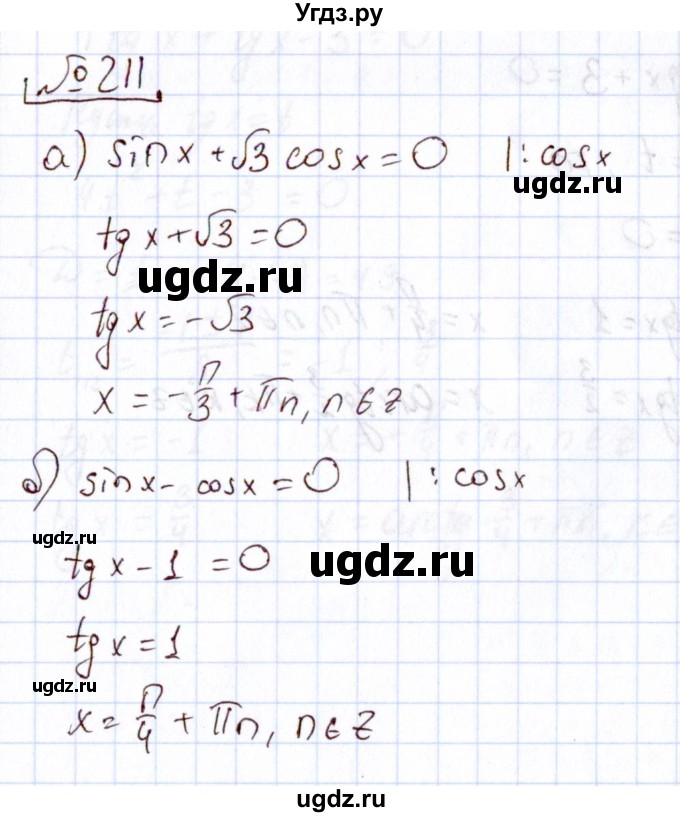 Угдз.ру
№ 211
а) sin x + √3 cos x = 0 |: cos x
ugdz.ru
tg x + √3 = 0
ugdz.ru
tg x = -√3
x = -π/3 + πn, n ∈ Z
б) sin x - cos x = 0 |: cos x
ugdz.ru
tg x - 1 = 0
ugdz.ru
tg x = 1
ugdz.ru
x = π/4 + πn, n ∈ Z
ugdz.ru